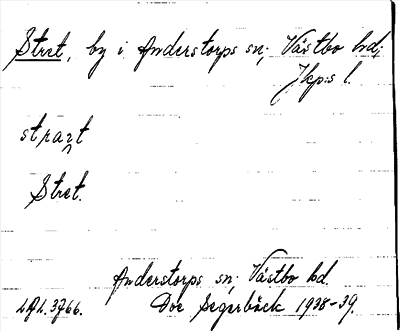 Stret, by i Anderstorps sn; Västbo hd;
Jkp:s l.
strazt
Stret.
Anderstorps sn, Västbo hd.
L.A.L. 3766. Doc Segerbäck 1938-39.